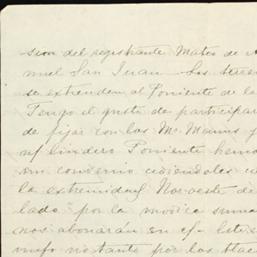 sion del registrante Mateo de
nuel San Juan. Los terre
se extrenden al Poniente de la
Tengo el gusto de participar
de fijar con los
lindero Poniente hemo
un convenio cediendoles
la extremidad Noroeste de
lado por la modica suma
nos abonarán en
no tanto por los